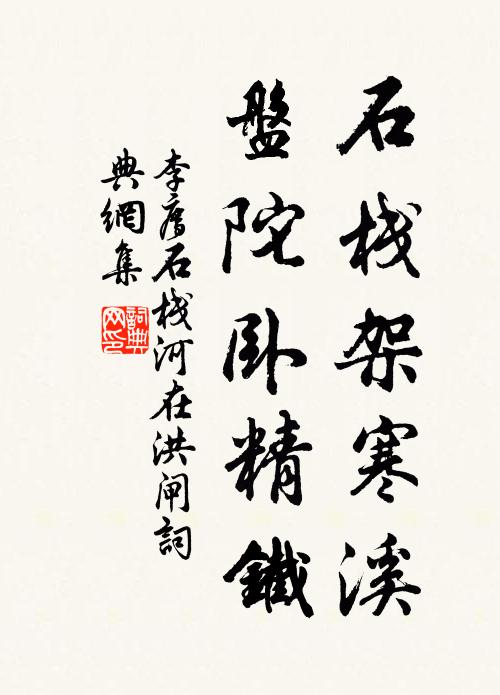 石棧架寒溪
盤陀卧精鐵
李廌石棧河在洪闸詞
典網集
詞典
网印